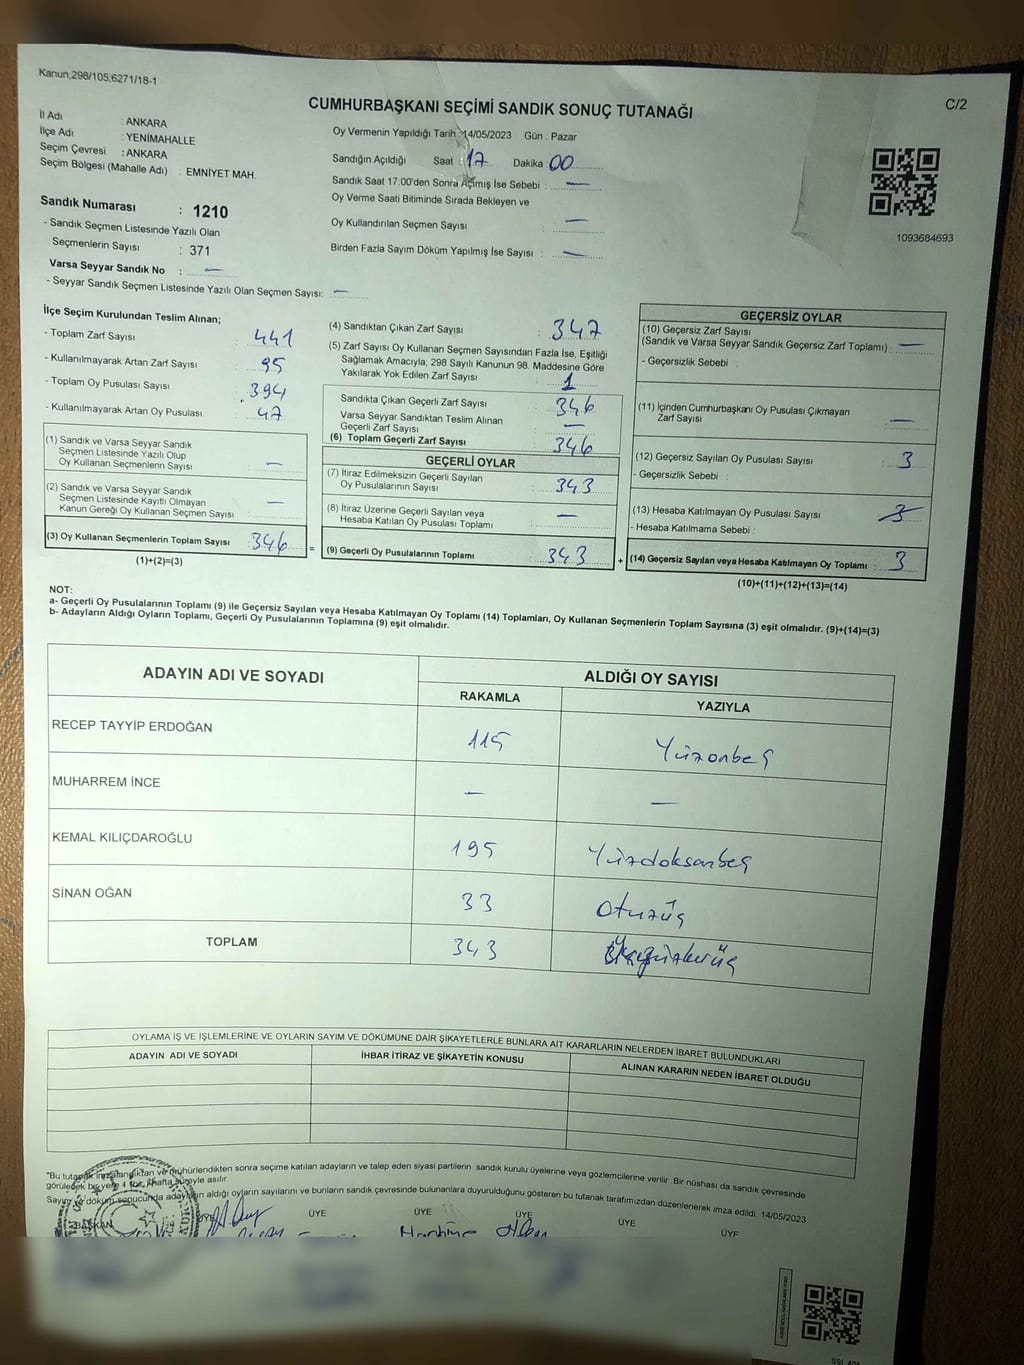 Kanun;298/105;6271/18-1
C/2
CUMHURBAŞKANI SEÇİMİ SANDIK SONUÇ TUTANAĞI
İl Adı : ANKARA
İlçe Adı : YENİMAHALLE
Seçim Çevresi : ANKARA
Seçim Bölgesi (Mahalle Adı) : EMNİYET MAH.
Sandık Numarası : 1210
- Sandık Seçmen Listesinde Yazılı Olan
Seçmenlerin Sayısı : 371
Varsa Seyyar Sandık No : —
- Seyyar Sandık Seçmen Listesinde Yazılı Olan Seçmen Sayısı: —
Oy Vermenin Yapıldığı Tarih : 14/05/2023 Gün : Pazar
Sandığın Açıldığı Saat : 17 Dakika 00
Sandık Saat 17:00'den Sonra Açılmış İse Sebebi : —
Oy Verme Saati Bitiminde Sırada Bekleyen ve
Oy Kullandırılan Seçmen Sayısı : —
Birden Fazla Sayım Döküm Yapılmış İse Sayısı : —
1093684693
İlçe Seçim Kurulundan Teslim Alınan;
- Toplam Zarf Sayısı : 441
- Kullanılmayarak Artan Zarf Sayısı : 95
- Toplam Oy Pusulası Sayısı : 394
- Kullanılmayarak Artan Oy Pusulası : 47
(1) Sandık ve Varsa Seyyar Sandık
Seçmen Listesinde Yazılı Olup
Oy Kullanan Seçmenlerin Sayısı : —
(2) Sandık ve Varsa Seyyar Sandık
Seçmen Listesinde Kayıtlı Olmayan
Kanun Gereği Oy Kullanan Seçmen Sayısı : —
(3) Oy Kullanan Seçmenlerin Toplam Sayısı : 346
(1)+(2)=(3)
(4) Sandıktan Çıkan Zarf Sayısı : 347
(5) Zarf Sayısı Oy Kullanan Seçmen Sayısından Fazla İse, Eşitliği
Sağlamak Amacıyla, 298 Sayılı Kanunun 98. Maddesine Göre
Yakılarak Yok Edilen Zarf Sayısı : 1
Sandıkta Çıkan Geçerli Zarf Sayısı : 346
Varsa Seyyar Sandıktan Teslim Alınan
Geçerli Zarf Sayısı : —
(6) Toplam Geçerli Zarf Sayısı : 346
GEÇERLİ OYLAR
(7) İtiraz Edilmeksizin Geçerli Sayılan
Oy Pusulalarının Sayısı : 343
(8) İtiraz Üzerine Geçerli Sayılan veya
Hesaba Katılan Oy Pusulası Toplamı : —
= (9) Geçerli Oy Pusulalarının Toplamı : 343 +
GEÇERSİZ OYLAR
(10) Geçersiz Zarf Sayısı
(Sandık ve Varsa Seyyar Sandık Geçersiz Zarf Toplamı) : —
- Geçersizlik Sebebi :
(11) İçinden Cumhurbaşkanı Oy Pusulası Çıkmayan
Zarf Sayısı : —
(12) Geçersiz Sayılan Oy Pusulası Sayısı : 3
- Geçersizlik Sebebi :
(13) Hesaba Katılmayan Oy Pusulası Sayısı : 3
- Hesaba Katılmama Sebebi :
(14) Geçersiz Sayılan veya Hesaba Katılmayan Oy Toplamı : 3
(10)+(11)+(12)+(13)=(14)
NOT:
a- Geçerli Oy Pusulalarının Toplamı (9) ile Geçersiz Sayılan veya Hesaba Katılmayan Oy Toplamı (14) Toplamları, Oy Kullanan Seçmenlerin Toplam Sayısına (3) eşit olmalıdır. (9)+(14)=(3)
b- Adayların Aldığı Oyların Toplamı, Geçerli Oy Pusulalarının Toplamına (9) eşit olmalıdır.
ADAYIN ADI VE SOYADI ALDIĞI OY SAYISI
RAKAMLA YAZIYLA
RECEP TAYYİP ERDOĞAN 115 Yüzonbeş
MUHARREM İNCE — —
KEMAL KILIÇDAROĞLU 195 Yüzdoksanbeş
SİNAN OĞAN 33 Otuzüç
TOPLAM 343
OYLAMA İŞ VE İŞLEMLERİNE VE OYLARIN SAYIM VE DÖKÜMÜNE DAİR ŞİKAYETLERLE BUNLARA AİT KARARLARIN NELERDEN İBARET BULUNDUKLARI
ADAYIN ADI VE SOYADI İHBAR İTİRAZ VE ŞİKAYETİN KONUSU ALINAN KARARIN NEDEN İBARET OLDUĞU
"Bu tutanak imzalandıktan ve mühürlendikten sonra seçime katılan adayların ve talep eden siyasi partilerin sandık kurulu üyelerine veya gözlemcilerine verilir. Bir nüshası da sandık çevresinde
görülecek bir yere 1 hafta süreyle asılır.
Sayım ve döküm sonucunda adayların aldığı oyların sayılarını ve bunların sandık çevresinde bulunanlara duyurulduğunu gösteren bu tutanak tarafımızdan düzenlenerek imza edildi. 14/05/2023
BAŞKAN ÜYE ÜYE ÜYE ÜYE ÜYE ÜYE